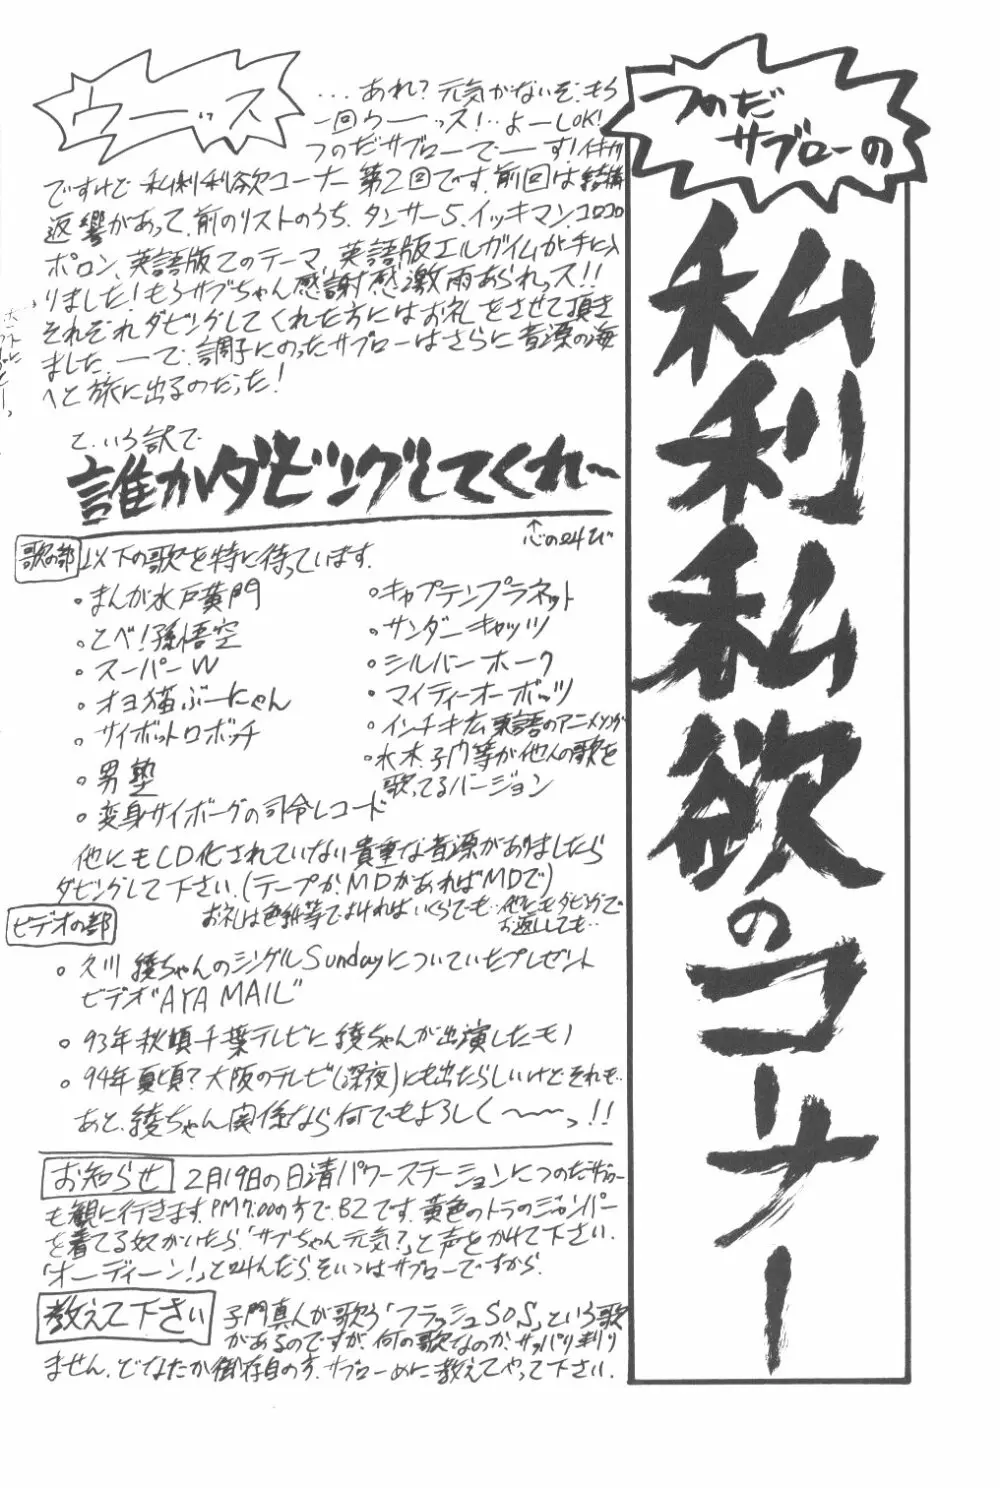 つのだ
サブローの
私利私欲のコーナー
ウーッス
...あれ?元気がないぞ.もう
一回ウーーッス!..よーしOK!
つのだサブローでーーす!
ですけど 私利私欲コーナー第2回です.前回は結構
返響があって、前のリストのうち、タンサー5、イッキマン、コロコロ
ポロン、英語版Zのテーマ、英語版エルガイムが手に入
りました!もうサブちゃん感謝感激雨あられっス!!
それぞれダビングしてくれた方にはお礼をさせて頂き
ました.ーーで、調子にのったサブローはさらに音源の海
へと旅に出るのだった!
と、いう訳で
誰かダビングしてくれ〜
↑心の叫び
歌の部 以下の歌を特に待っています.
・まんが水戸黄門
・とべ!孫悟空
・スーパーW
・オヨ猫ぶーにゃん
・サイボットロボッチ
・男塾
・変身サイボーグの司令レコード
・キャプテンプラネット
・サンダーキャッツ
・シルバーホーク
・マイティーオーボッツ
・インチキ広東語のアニメソング
・水木、子門等が他人の歌を
歌ってるバージョン
他にもCD化されていない貴重な音源がありましたら
ダビングして下さい.(テープか、MDがあればMDで)
お礼は色紙等でよければいくらでも...他にもダビングで
お返ししても...
ビデオの部
○久川 綾ちゃんのシングルSundayについていたプレゼント
ビデオ"AYA MAIL"
○93年秋頃千葉テレビに綾ちゃんが出演したモノ
○94年夏頃?大阪のテレビ(深夜)にも出たらしいけどそれも..
あと、綾ちゃん関係なら何でもよろしく〜〜〜っ!!
お知らせ 2月19日の日清パワーステーションにつのだサブロー
も観に行きます.PM7:00の方で.B2です.黄色のトラのジャンパー
を着てる奴がいたら、「サブちゃん元気?」と声をかけて下さい.
「オーディーン!」と叫んだら、そいつはサブローですから.
教えて下さい 子門真人が歌う「フラッシュSOS」という歌
があるのですが、何の歌なのか、サッパリ判り
ません.どなたか御存目の方、サブローめに教えてやって下さい.